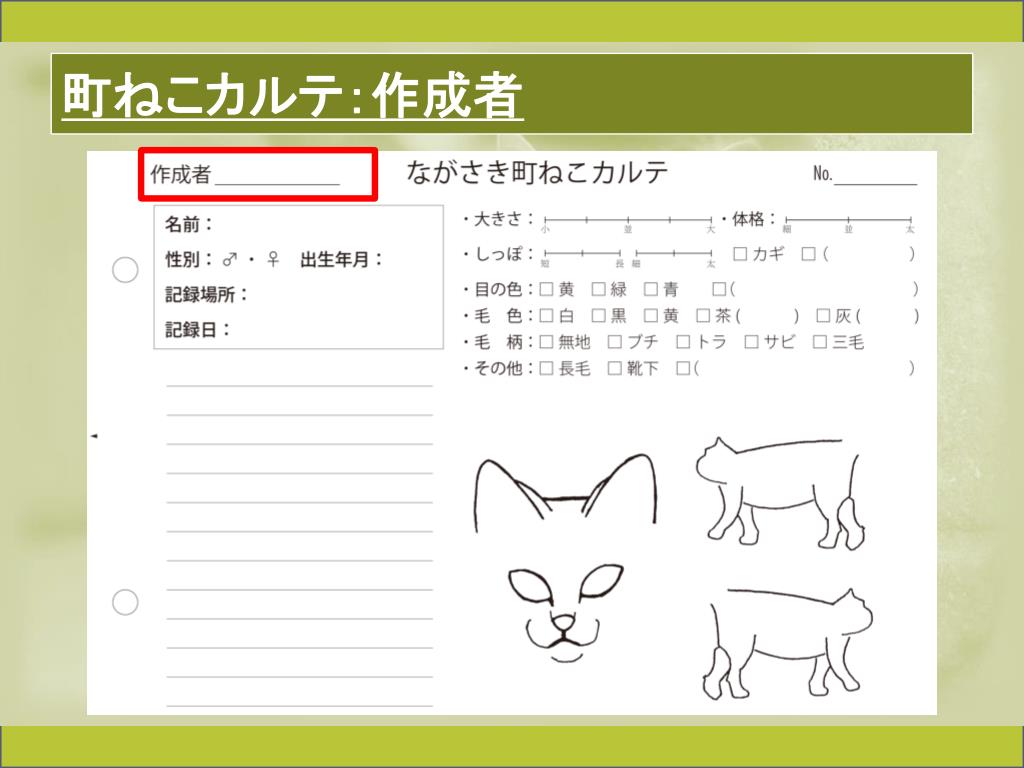 町ねこカルテ：作成者
作成者
ながさき町ねこカルテ
No.
名前：
性別：♂・♀　出生年月：
記録場所：
記録日：
・大きさ：
小　並　大
・体格：
細　並　太
・しっぽ：
短　長　細　太
□カギ　□（　　　）
・目の色：□黄　□緑　□青　□（　　　）
・毛　色：□白　□黒　□黄　□茶（　　　）　□灰（　　　）
・毛　柄：□無地　□ブチ　□トラ　□サビ　□三毛
・その他：□長毛　□靴下　□（　　　）